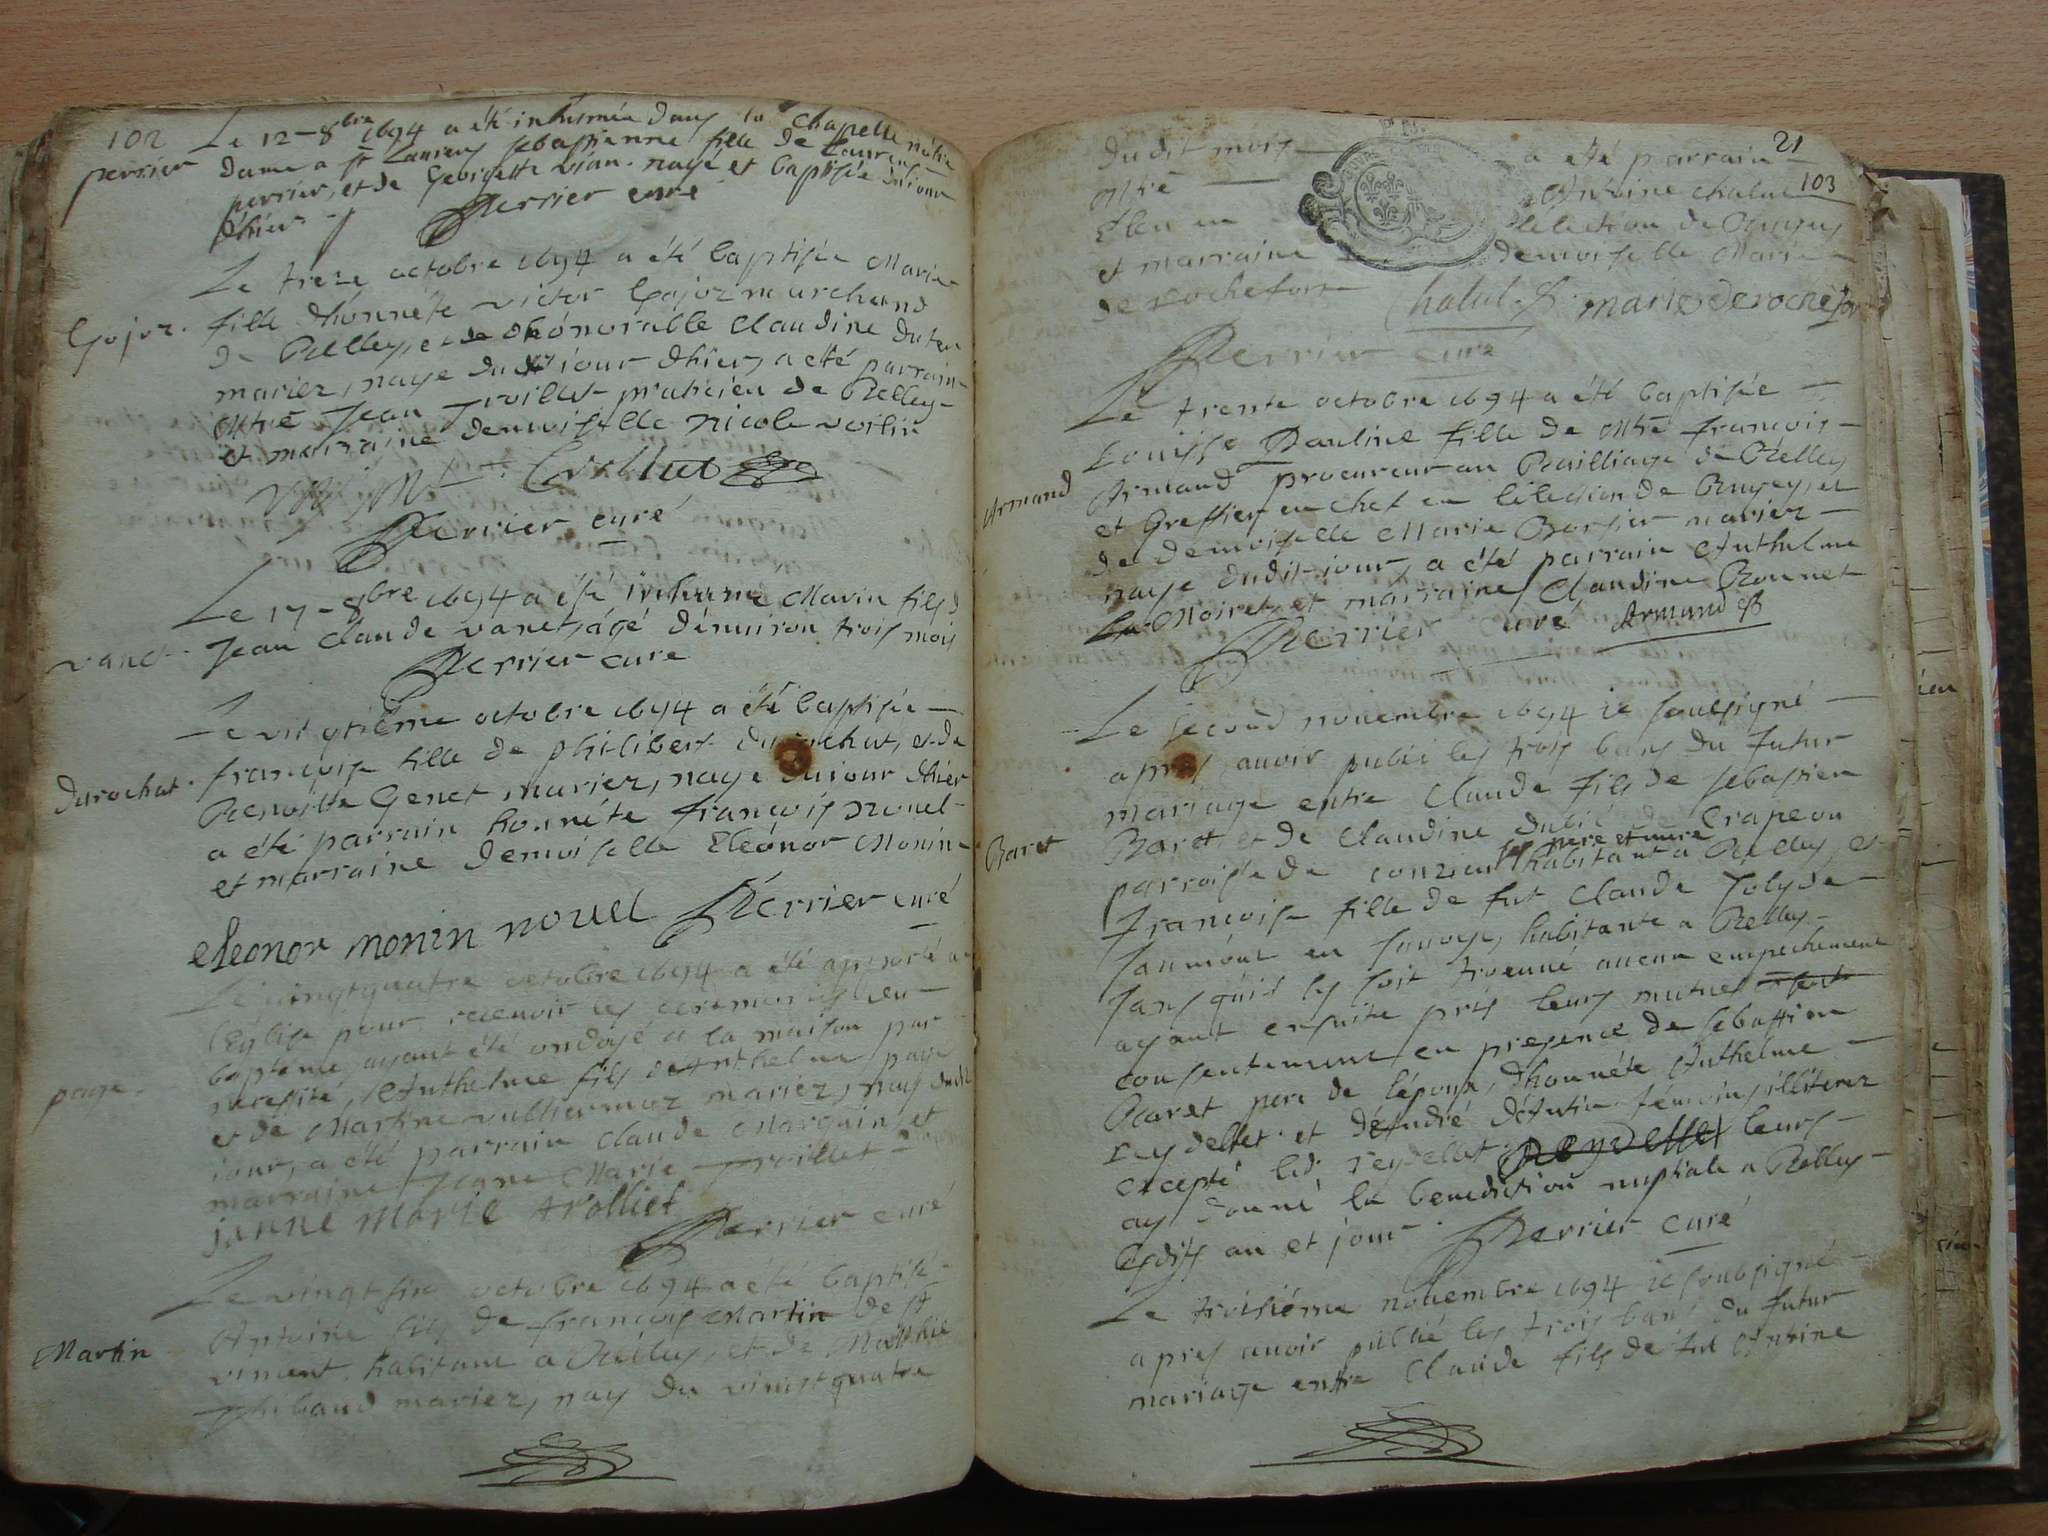 102
Le 12 - 8bre 1694 a été inhumée dans la Chapelle nôtre
perrier
dame a St Laurens sebastienne fille de Laurens
perrier, et de Georgette vian. naye et baptisée du jour
d'hier
Perrier curé
Le treze octobre 1694 a été baptisée Marie
Gojoz.
fille d'honnéte victor Gojoz marchand
de Belley, et de honorable Claudine
mariez, naye du jour d'hier, a été parrain
Mtre Jean Trollet praticien de Belley
et marraine demoiselle nicole
Trolliet
Perrier curé
Le 17 - 8bre 1694 a été inhumé Marin fils d
vanet.
Jean Claude vanet, âgé d'enuiron trois mois
Perrier curé
Le octobre 1694 a été baptisée
durochat.
françoise fille de philibert durochat, et de
Benoitte Genet mariez, naye du jour d'hier
a été parrain honnéte françois nouel
et marraine demoiselle Eléonor Monin
eleonor monin nouel Perrier curé
Le vingtquatre octobre 1694 a été apporté a
l'Eglise pour receuoir les ceremonies du
baptéme, ayant été ondoyé a la maison par
page.
necessité, Anthelme fils d'Anthelme page
et de Martine vulliermoz mariez, nay dudit
jour, a été parrain Claude Marquin, et
marraine Jeane Marie Trolliet
janne marie trolliet
Perrier curé
Le vingtsix octobre 1694 a été baptisé
Antoine fils de françois Martin de St
Martin
vincent, habitant a Belley, et de Mathie
Thibaud mariez, nay du vingtquatre
21
dudit mois a été parrain
103
Mtre Antoine chalut
Eleu en l'élection de Bugey
et marraine demoiselle Marie
de rochefort
Chalut. marie de rochefort
Perrier curé
Le trente octobre 1694 a été baptisée
Louise Pauline fille de Mtre françois
Armand
Armand procureur au Bailliage de Belley
et Greffier en chef en l'élection de Bugey, et
de demoiselle Marie mariez
naye dudit jour, a été parrain Anthelme
La Moiret, et marraine Claudine Bonnet
Perrier curé Armand
Le second nouembre 1694 ie soussigné
apres auoir publié les trois bans du futur
mariage entre Claude fils de sebastien
Baret
Baret, et de Claudine de Crapeou
pere et mere
parroisse de habitant a Belley, et
françoise fille de fut Claude Joly de
en sauoye, habitante a Belley
sans qu'il se soit treuué aucun empechement
ayant ensuite pris leurs mutuel
consentement en presence de sebastien
Baret pere de l'époux, d'honnéte Anthelme
reydellet et d'André d'Antin témoins illiterez
excepté led. reydellet. Reydellet leurs
ay donné la benediction nuptiale a Belley
lesdits an et jour. Perrier curé
Le troisiéme nouembre 1694 ie soussigné
apres auoir publié les trois bans du futur
mariage entre Claude fils de fut Antoine